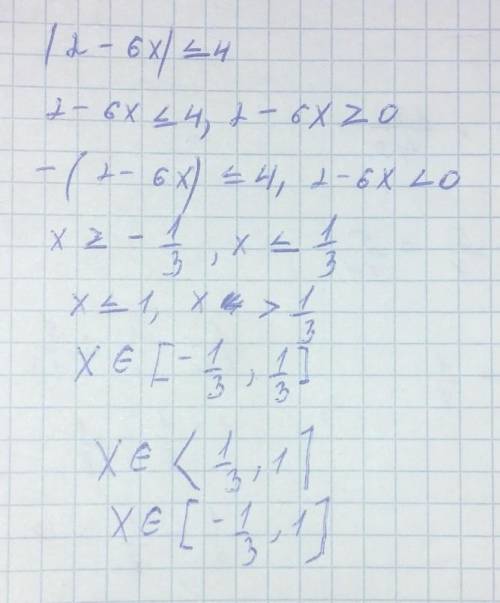 |2 - 6x| ≤ 4
2 - 6x ≤ 4, 2 - 6x ≥ 0
-(2 - 6x) ≤ 4, 2 - 6x < 0
x ≥ - 1/3, x ≤ 1/3
x ≤ 1, x > 1/3
x ∈ [- 1/3, 1/3]
x ∈ ⟨ 1/3, 1]
x ∈ [- 1/3, 1]